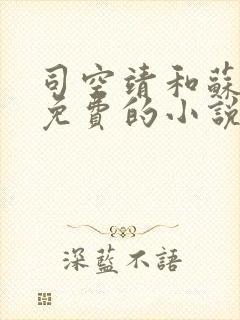 司空靖和蘇
免費的小說
深藍不語